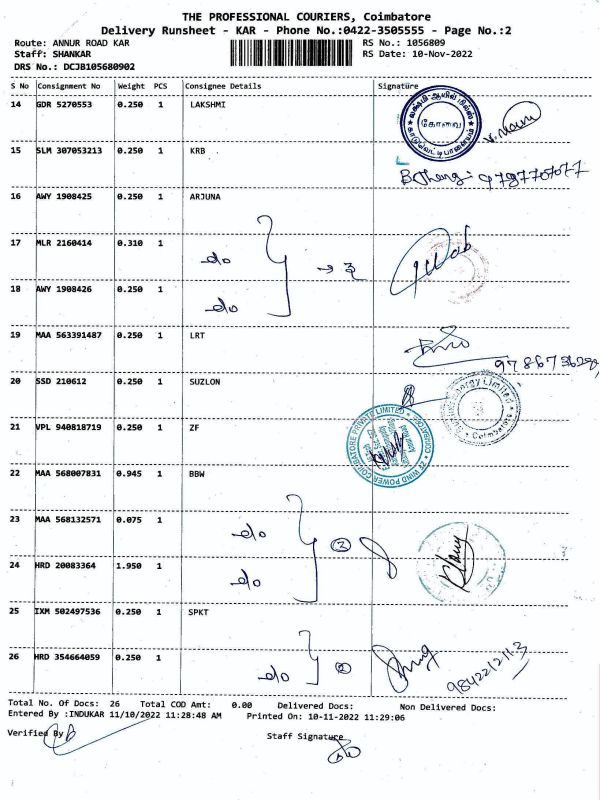 THE PROFESSIONAL COURIERS, Coimbatore
Delivery Runsheet - KAR - Phone No.:0422-3505555 - Page No.:2
Route: ANNUR ROAD KAR RS No.: 1056809
Staff: SHANKAR RS Date: 10-Nov-2022
DRS No.: DCJB105680902
S No Consignment No Weight PCS Consignee Details Signature
14 GDR 5270553 0.250 1 LAKSHMI
கோவை
15 SLM 307053213 0.250 1 KRB
16 AWY 1908425 0.250 1 ARJUNA
17 MLR 2160414 0.310 1 do
18 AWY 1908426 0.250 1 do
19 MAA 563391487 0.250 1 LRT
20 SSD 210612 0.250 1 SUZLON
Energy Limited
Coimbatore
21 VPL 940818719 0.250 1 ZF
ZF WIND POWER COIMBATORE PRIVATE LIMITED
22 MAA 568007831 0.945 1 BBW
23 MAA 568132571 0.075 1 do
24 HRD 20083364 1.950 1 do
25 IXM 502497536 0.250 1 SPKT
26 HRD 354664059 0.250 1 do
Total No. Of Docs: 26 Total COD Amt: 0.00 Delivered Docs: Non Delivered Docs:
Entered By :INDUKAR 11/10/2022 11:28:48 AM Printed On: 10-11-2022 11:29:06
Verified By Staff Signature